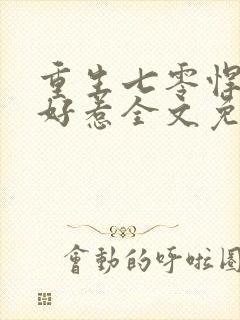 重生七零悍
好惹全文免
會動的呼啦圈